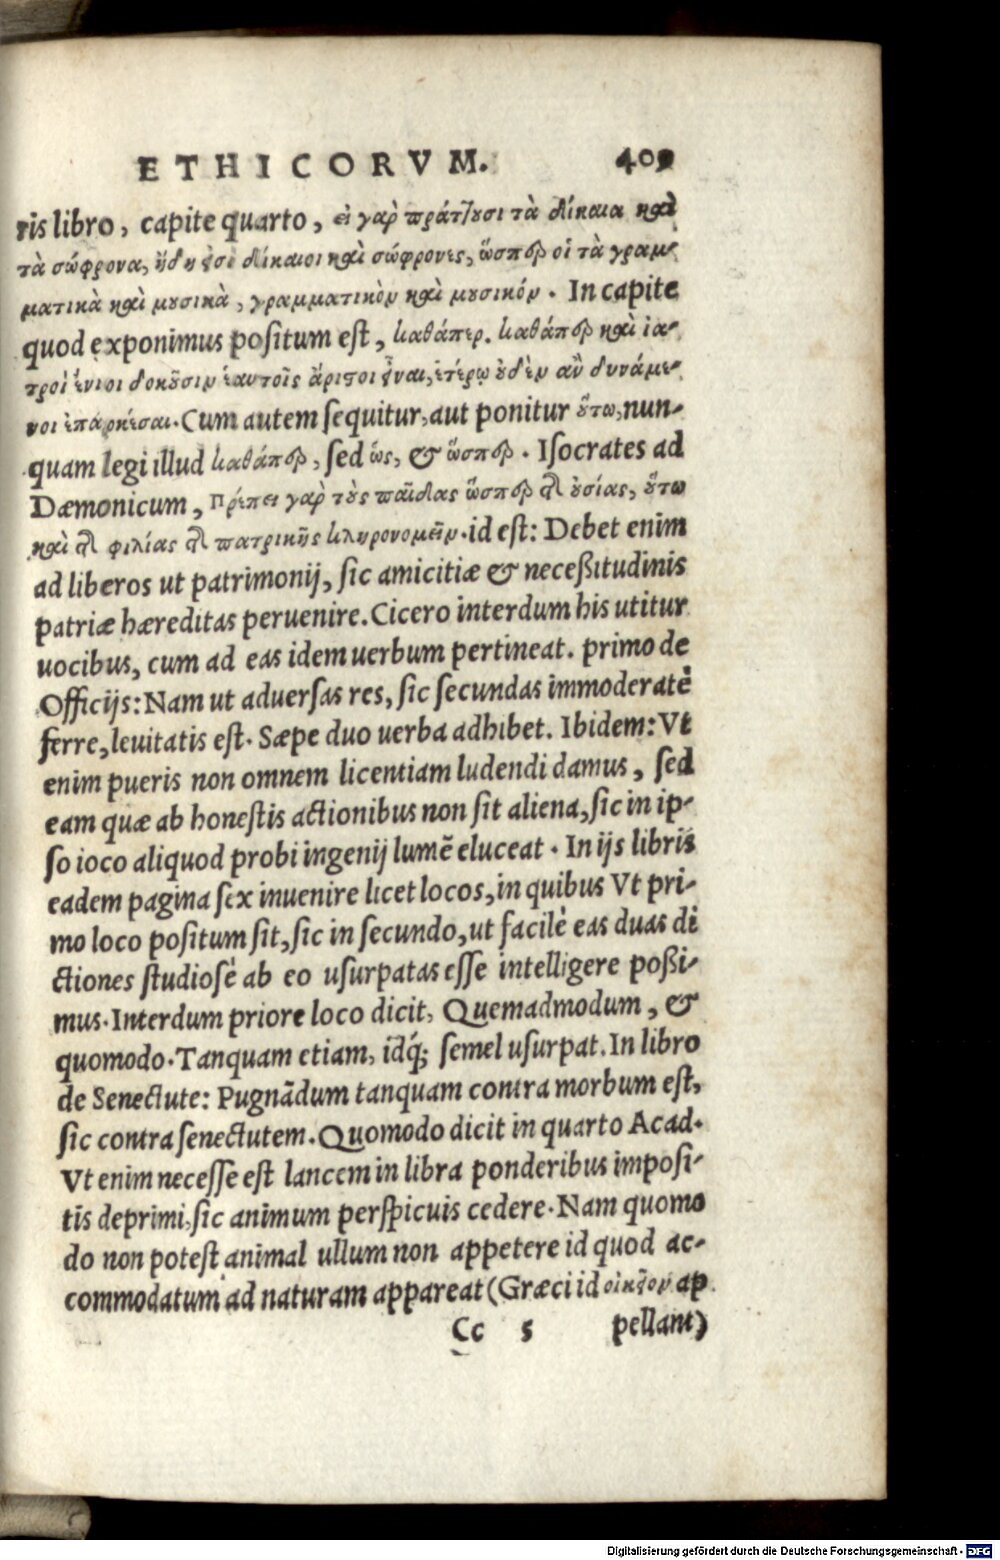 ETHICORVM. 409
ris libro, capite quarto, εἰ γαρ πράττουσι τὰ δίκαια καὶ
τὰ σώφρονα, ἤδη εἰσὶ δίκαιοι καὶ σώφρονες, ὥσπερ οἱ τὰ γραμ-
ματικὰ καὶ μουσικὰ, γραμματικὸν καὶ μουσικόν. In capite
quod exponimus positum est, καθάπερ. καθάπερ καὶ ἰα-
τροὶ ἔνιοι δοκοῦσιν ἑαυτοῖς ἄριστοι εἶναι, ἑτέρῳ οὐδὲν αὖ δυνάμε-
νοι ἐπαρκέσαι. Cum autem sequitur, aut ponitur οὕτω, nun-
quam legi illud καθάπερ, sed ὡς, & ὥσπερ. Isocrates ad
Dæmonicum, Πρέπει γαρ τοὺς παῖδας ὥσπερ τῆς οὐσίας, οὕτω
καὶ τῆς φιλίας τῆς πατρικῆς κληρονομεῖν. id est: Debet enim
ad liberos ut patrimonij, sic amicitiæ & neceßitudinis
patriæ hæreditas peruenire. Cicero interdum his utitur
uocibus, cum ad eas idem uerbum pertineat. primo de
Officijs: Nam ut aduersas res, sic secundas immoderatè
ferre, leuitatis est. Sæpe duo uerba adhibet. Ibidem: Vt
enim pueris non omnem licentiam ludendi damus, sed
eam quæ ab honestis actionibus non sit aliena, sic in ip-
so ioco aliquod probi ingenij lumẽ eluceat. In ijs libris
eadem pagina sex inuenire licet locos, in quibus Vt pri-
mo loco positum sit, sic in secundo, ut facilè eas duas di
ctiones studiosè ab eo usurpatas esse intelligere poßi-
mus. Interdum priore loco dicit, Quemadmodum, &
quomodo. Tanquam etiam, idq́; semel usurpat. In libro
de Senectute: Pugnãdum tanquam contra morbum est,
sic contra senectutem. Quomodo dicit in quarto Acad.
Vt enim necesse est lancem in libra ponderibus imposi-
tis deprimi, sic animum perspicuis cedere. Nam quomo
do non potest animal ullum non appetere id quod ac-
commodatum ad naturam appareat (Græci id οἰκεῖον ap
Cc 5 pellant)
Digitalisierung gefördert durch die Deutsche Forschungsgemeinschaft - DFG